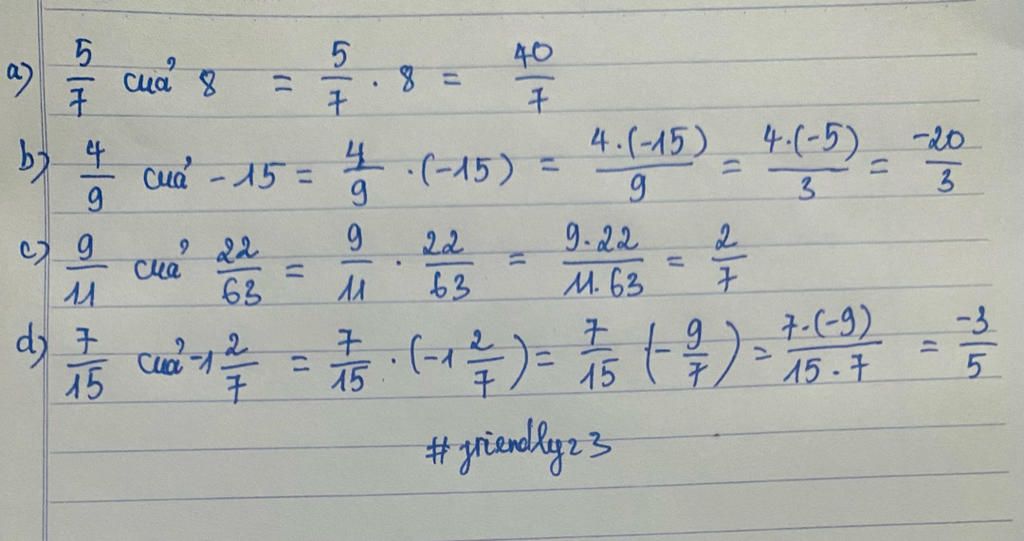 a) 5/7 của 8 = 5/7 . 8 = 40/7
b) 4/9 của -15 = 4/9 .(-15) = 4.(-15)/9 = 4.(-5)/3 = -20/3
c) 9/11 của 22/63 = 9/11 . 22/63 = 9.22/11.63 = 2/7
d) 7/15 của -1 2/7 = 7/15 . (-1 2/7) = 7/15 (-9/7) = 7.(-9)/15.7 = -3/5